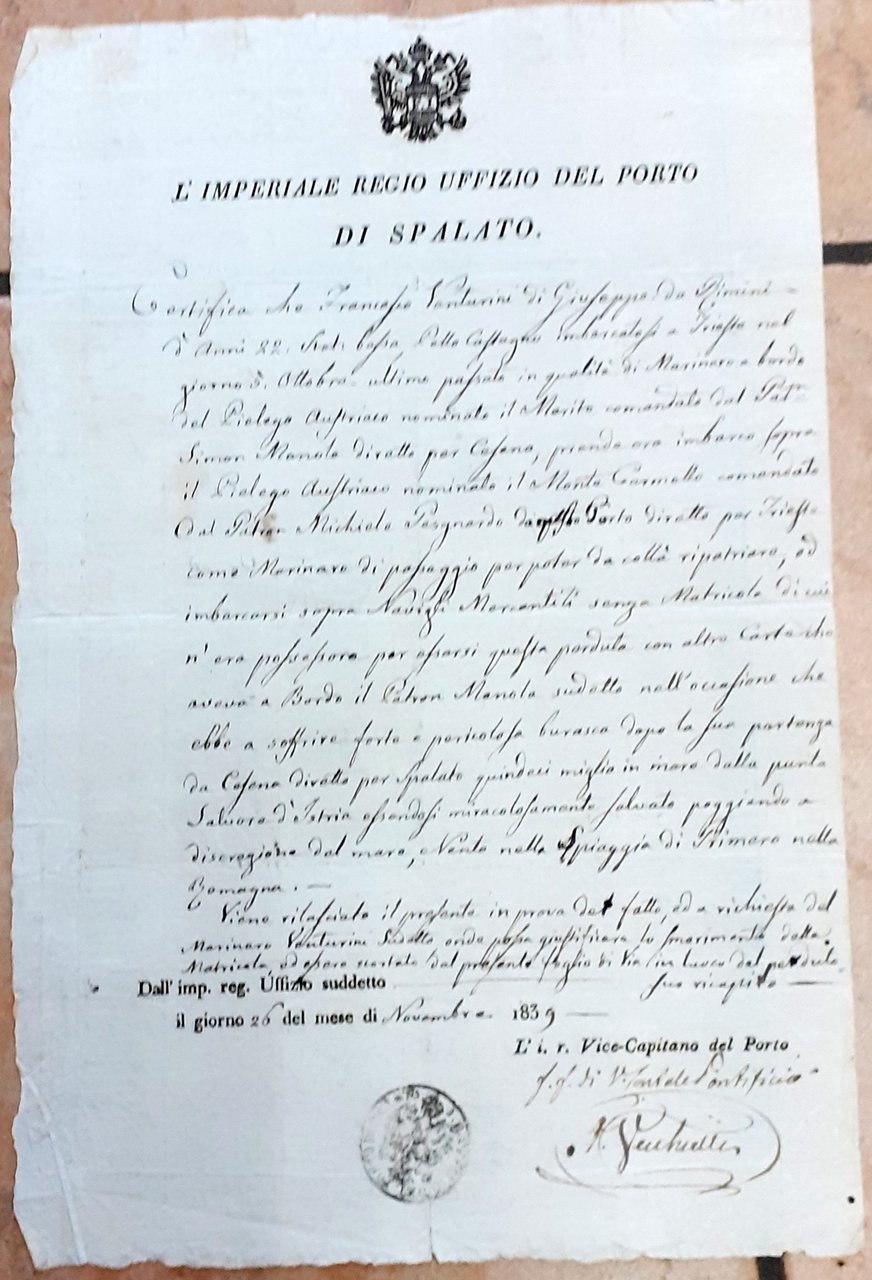 L' IMPERIALE REGIO UFFIZIO DEL PORTO
DI SPALATO.
Certifica che Francesco Venturini di Giuseppe da Rimini
d'Anni 22. Stat: bassa Pello Castagno imbarcatosi a Trieste nel
giorno 5. Ottobre ultimo passato in qualità di Marinaro a bordo
del Pielego Austriaco nominato il Merito comandato dal Patn
Simon Manola diretto per Cesena, prende ora imbarco sopra
il Pielego Austriaco nominato il Monte Carmello comandato
dal Patron Michiele da questo Porto diretto per Trieste
come Marinaro di passaggio per poter da collà ripatriare, od
imbarcarsi sopra Navigli Mercantili senza Matricola di cui
n' era possessore per essersi questa perduta con altre Carte che
aveva a Bordo il Patron Manola sudetto nell'occasione che
ebbe a soffrire forte e pericolosa burasca dopo la sua partenza
da Cesena diretto per Spalato quindeci miglia in mare dalla punta
Salvore d'Istria essendosi miracolosamente salvato poggiando a
discregione del mare, e Vento nella Spiaggia di Primaro nella
Romagna.
Viene rilasciato il presente in prova del fatto, ed a richiesta del
Marinaro Venturini Sudetto onde possa giustificare lo smarimento della
Matricola, ed essere scortato dal presente foglio di Via in luoco del perduto
suo ricapito
Dall' imp. reg. Uffizio suddetto
il giorno 26 del mese di Novembre 1839
L' i. r. Vice-Capitano del Porto
f.f. di V. Console Pontificio